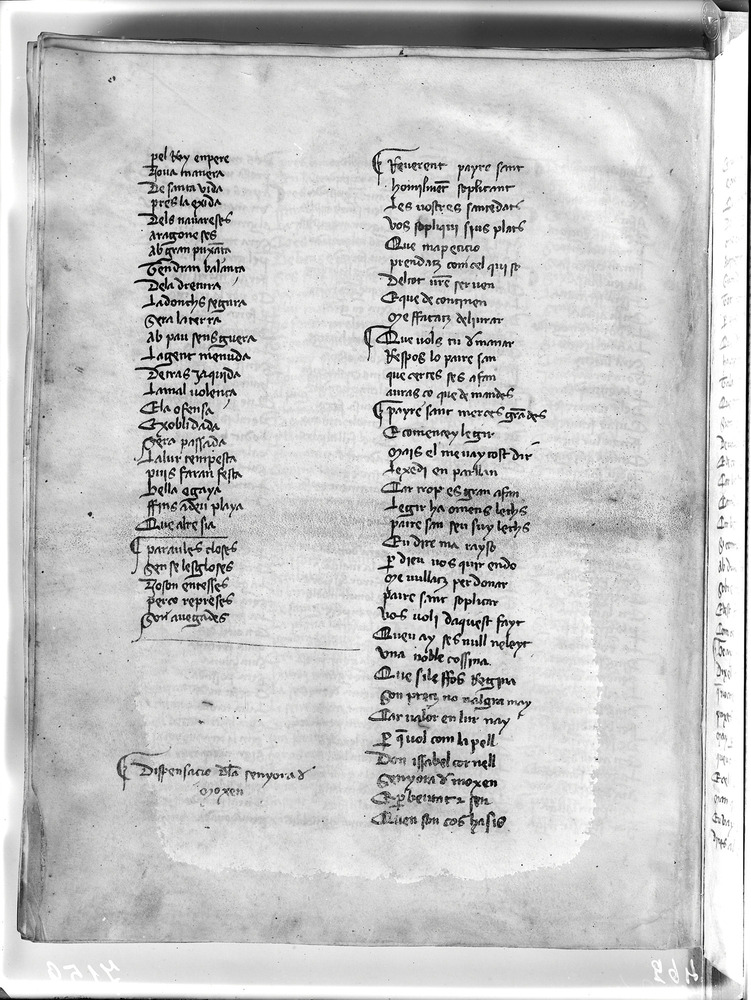 pel Rey enpere
Noua manera
De santa vida
pres la exida
Dels nauareses
aragoneses
ab gran puxança
Tendran balança
Dela dretura
Ladonchs segura
Sera laterra
ab pau sens guera
Lagent menuda
Detras jaquida
Lamal volença
Ela ofensa
Exoblidada
Sera passada
Lalur tempesta
puis faran festa
bella egaya
ffins adeu playa
Que altre sia
paraules closes
Sen se les gloses
Noson enteses
perço represes
Son auegades
Dispensacio dla senyora d
moxen
Reuerent payre sant
homilment soplicant
Les vostres santedats
vos sopliqui sius plats
Que ma peticio
prendatz com cel qui so
Del cor vre seruen
E que de continen
me ffaçatz deliurar
Que vols tu dmanar
Respos lo paire san
que certes ses afan
auras ço que demandes
payre sant merces grādes
E comencey legir
mais el me vay tost dir
Lexedi en parllan
Car trop es gran afan
Legir ha omens lechs
paire san seu suy lechs
Eu dire ma rayso
p dieu vos quir en do
me vullatz perdonar
paire sant soplicar
vos voli daquest fayt
Queu ay ses null neleyt
vna noble cossina
Que sile ffos Regina
Son pretz no valgra may
Car valor en lur nay
P q̄ vol com la pell
Don issabel cornell
Senyora d moxen
E p beutat z sen
Quen son cos ha sis